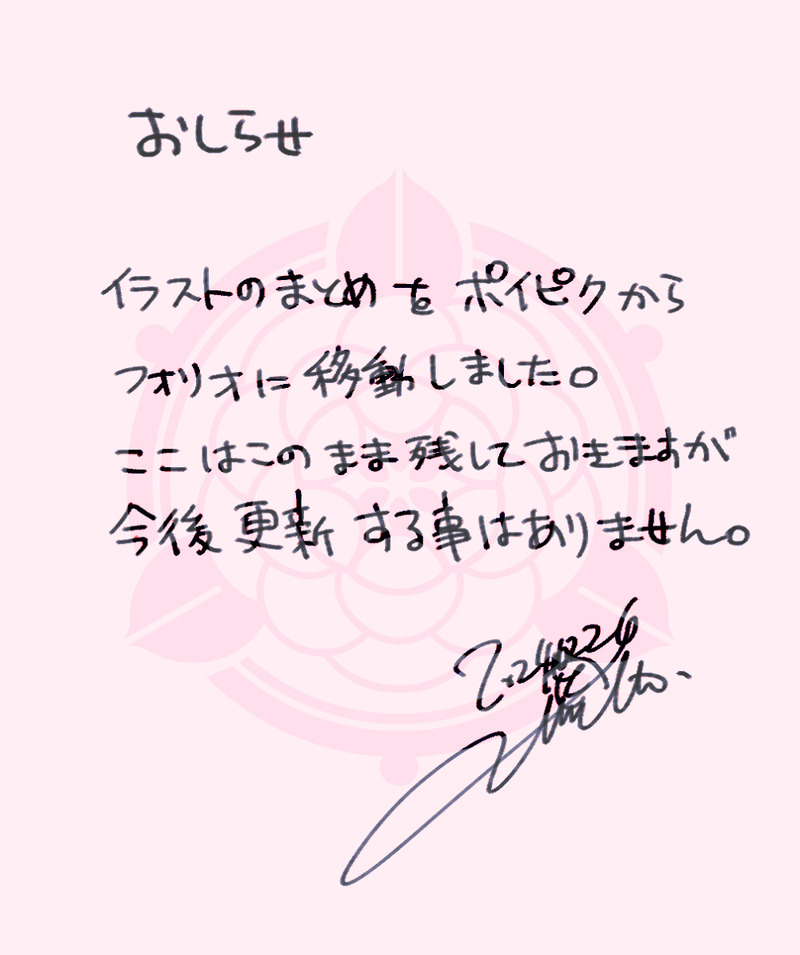 おしらせ
イラストのまとめを ポイピクから
フォリオに移動しました。
ここはこのまま残しておきますが
今後更新する事はありません。